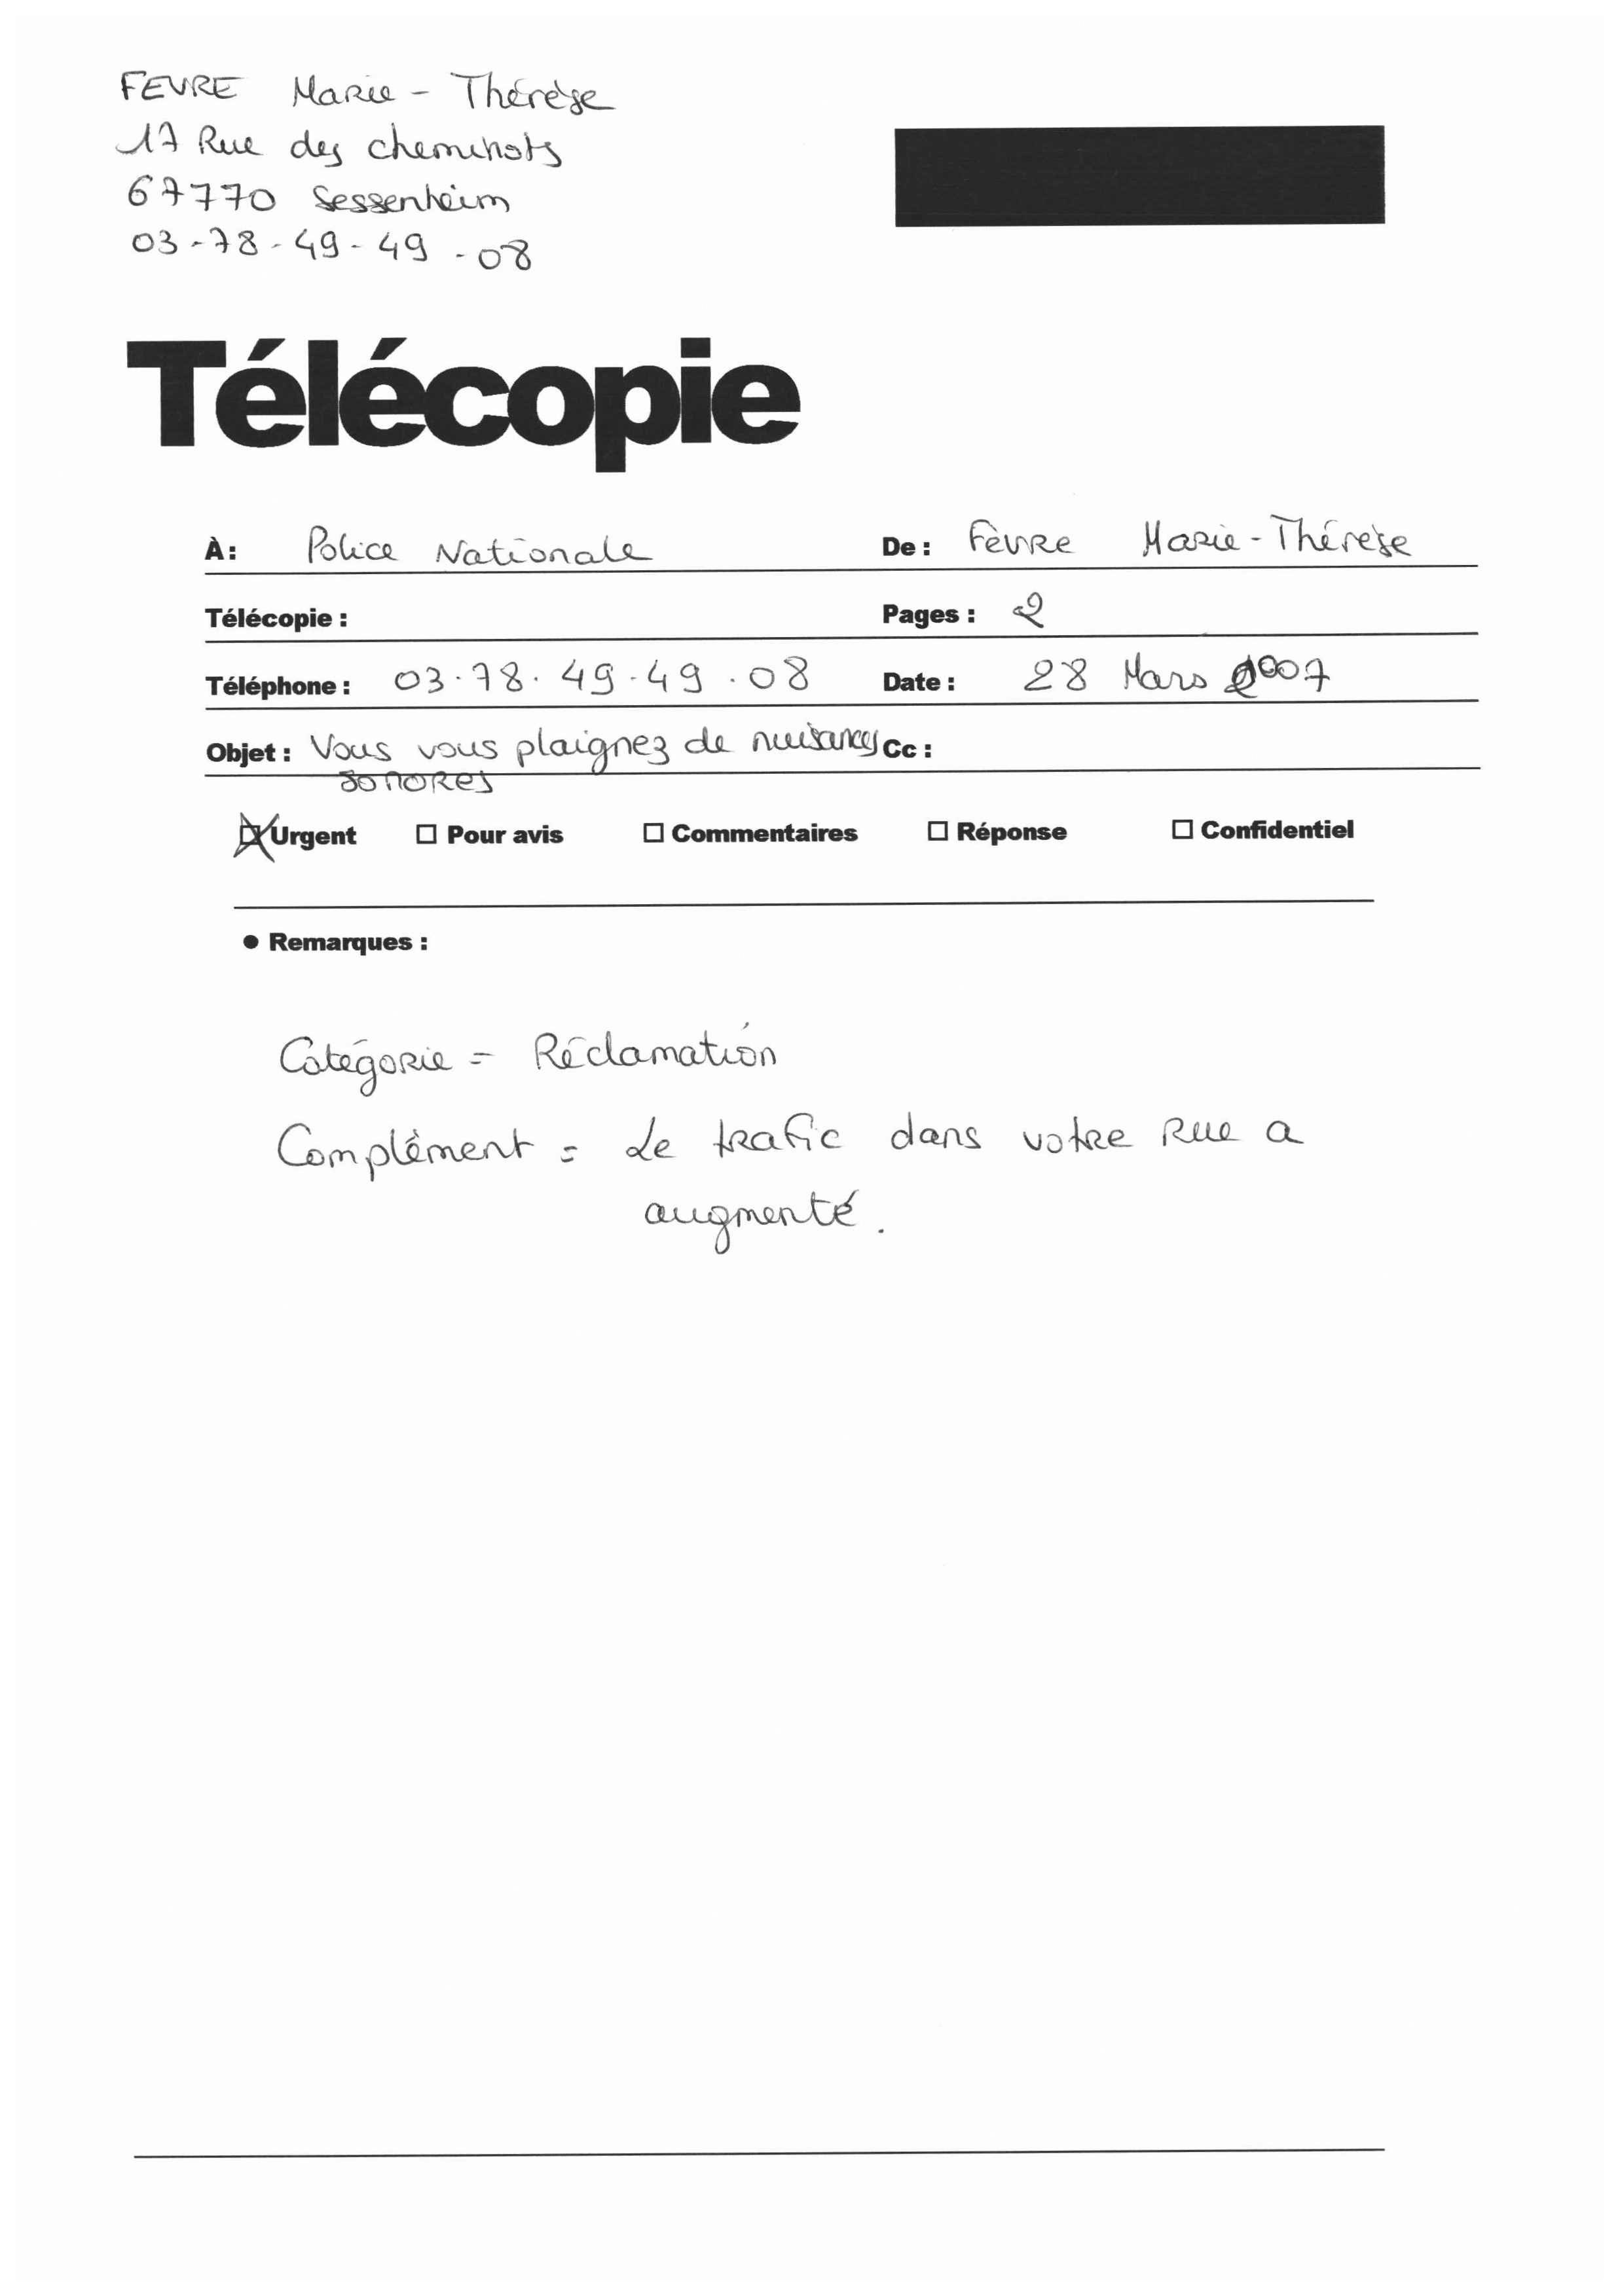 FEVRE Marie-Thérèse
17 Rue des cheminots
67770 Sessenheim
03-78-49-49-08
Télécopie
À : Police Nationale De : Fèvre Marie-Thérèse
Télécopie : Pages : 2
Téléphone : 03.78.49.49.08 Date : 28 Mars 2007
Objet : Vous vous plaignez de nuisances Cc :
sonores
Urgent Pour avis Commentaires Réponse Confidentiel
• Remarques :
Catégorie = Réclamation
Complément = Le trafic dans votre Rue a
augmenté.